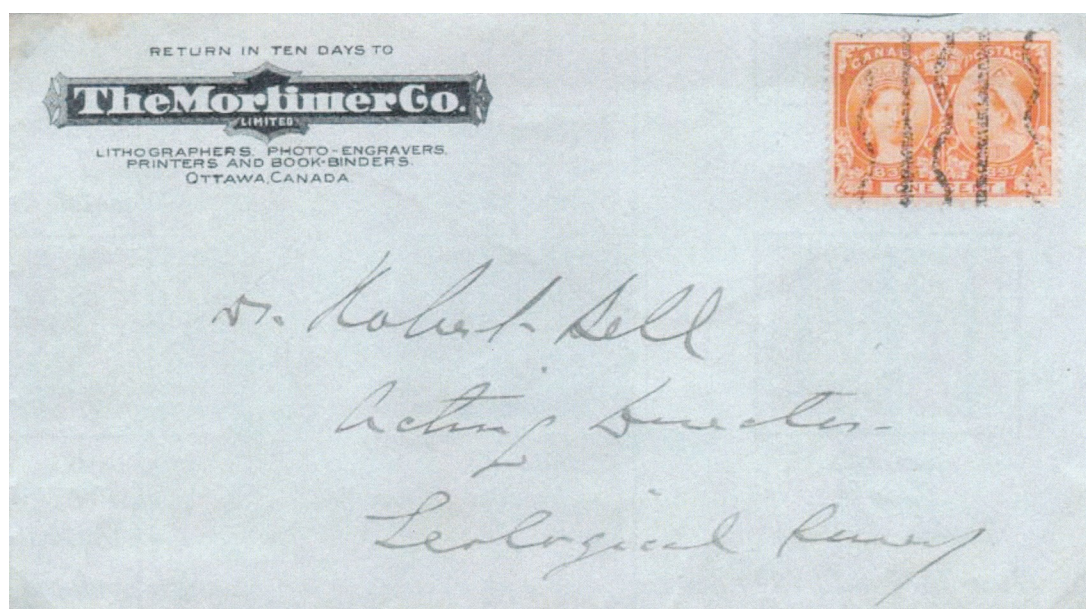 RETURN IN TEN DAYS TO
The Mortimer Co.
LIMITED
LITHOGRAPHERS, PHOTO-ENGRAVERS,
PRINTERS AND BOOK-BINDERS.
OTTAWA, CANADA.
CANADA POSTAGE
1837 1897
ONE CENT
Dr. Robert Bell
Acting Director
Geological Survey